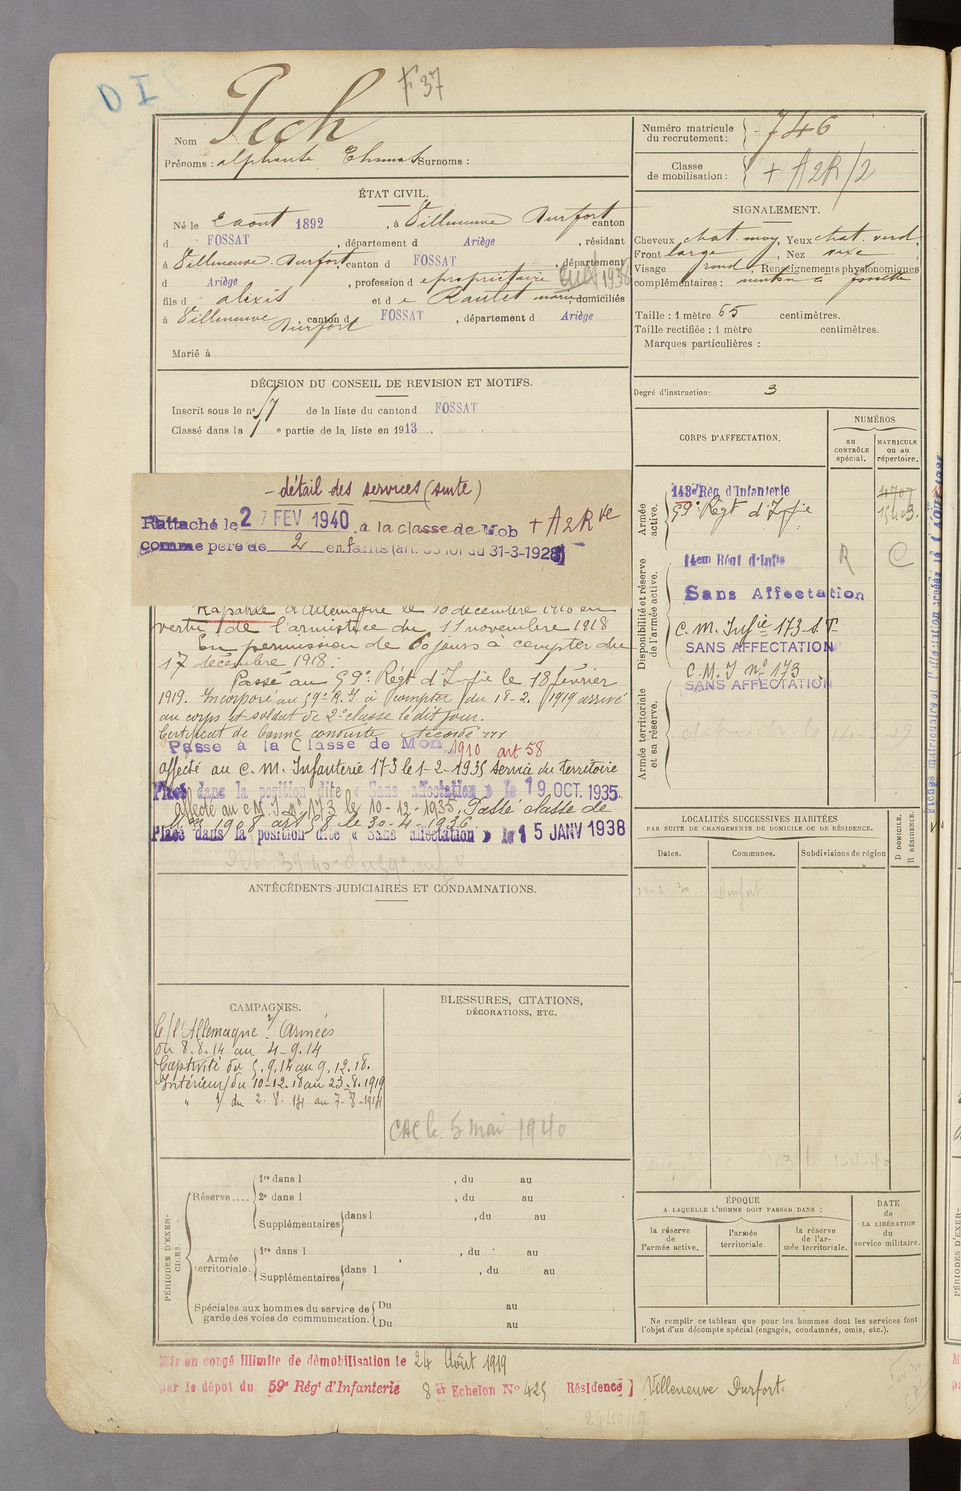 D I
F 37
Nom Pech
Prénoms : alphonse Surnoms :
Numéro matricule du recrutement : 746
Classe de mobilisation : + A2R/2
ÉTAT CIVIL.
Né le 2 aout 1892, à Villeneuve Durfort canton
d FOSSAT, département d Ariège, résidant
à Villeneuve Durfort, canton d FOSSAT, département
d Ariège, profession d propriétaire
fils d alexis et d e Raulet marie, domiciliés
à Villeneuve Durfort, canton d FOSSAT, département d Ariège
Marié à
SIGNALEMENT.
Cheveux chat. moy, Yeux chat. verd,
Front large, Nez
Visage rond, Renseignements physionomiques
complémentaires : menton à fossette
Taille : 1 mètre 65 centimètres.
Taille rectifiée : 1 mètre centimètres.
Marques particulières :
Degré d'instruction : 3
DÉCISION DU CONSEIL DE REVISION ET MOTIFS.
Inscrit sous le n° 57 de la liste du canton d FOSSAT
Classé dans la 1e partie de la liste en 1913.
- détail des services (suite)
Rattaché le 27 FEV 1940 à la classe de Mob + A2R
comme père de 2 enfants (art. 58 loi du 31-3-1928)
Rapatrié d'Allemagne le 10 décembre 1918 en
vertu de l'armistice du 11 novembre 1918
En permission de 60 jours à compter du
17 décembre 1918.
Passé au 59e Régt d'Infie le 18 février
1919. Incorporé au 59e R.I à compter du 18-2-1919 arrivé
au corps et soldat de 2e classe le dit jour.
Certificat de bonne conduite accordé
Passé à la Classe de Mon 1910 art 58
affecté au C. M. Infanterie 173 le 1-2-1935 service du territoire
Placé dans la position dite « Sans affectation » le 19 OCT. 1935
affecté au C M. I. n° 173 le 10-12-1935. Passé classe de
Mon 1908 art 58 le 30-4-1936
Placé dans la position dite « Sans affectation » le 15 JANV 1938
CORPS D'AFFECTATION.
NUMÉROS
au CONTRÔLE spécial.
MATRICULE ou au répertoire.
Armée active.
143e Rég d'Infanterie 4707
59e Régt d'Infie
Disponibilité et réserve de l'armée active.
14em Régt d'Infie R C
Sans Affectation
C. M. Infie 173 S. T
SANS AFFECTATION
C. M. I n° 173
SANS AFFECTATION
Armée territoriale et sa réserve.
LOCALITÉS SUCCESSIVES HABITÉES
PAR SUITE DE CHANGEMENTS DE DOMICILE OU DE RÉSIDENCE.
Dates. Communes. Subdivisions de région
D DOMICILE.
R RÉSIDENCE.
Durfort
ANTÉCÉDENTS JUDICIAIRES ET CONDAMNATIONS.
CAMPAGNES.
C/ l'Allemagne 1/ Armées
du 8.8.14 au 4-9.14
Captivité du 5.9.14 au 9.12.18.
Intérieur/ du 10-12-18 au 23-8-1919
" 1/ du 2-8-14 au 7-8-1914
BLESSURES, CITATIONS,
DÉCORATIONS, ETC.
CAC le 5 mai 1940
PÉRIODES D'EXERCICES.
Réserve.... 1re dans l , du au
2e dans l , du au
Supplémentaires dans l , du au
Armée territoriale. 1re dans l , du au
Supplémentaires dans l , du au
Spéciales aux hommes du service de garde des voies de communication. Du au
Du au
ÉPOQUE
A LAQUELLE L'HOMME DOIT PASSER DANS :
la réserve de l'armée active.
l'armée territoriale.
la réserve de l'armée territoriale.
DATE de LA LIBÉRATION du service militaire.
Ne remplir ce tableau que pour les hommes dont les services font
l'objet d'un décompte spécial (engagés, condamnés, omis, etc.).
Mis en congé illimité de démobilisation le 24 Août 1919
par le dépot du 59e Rég' d'Infanterie 8 Echelon N° 425 Résidence ] Villeneuve Durfort.